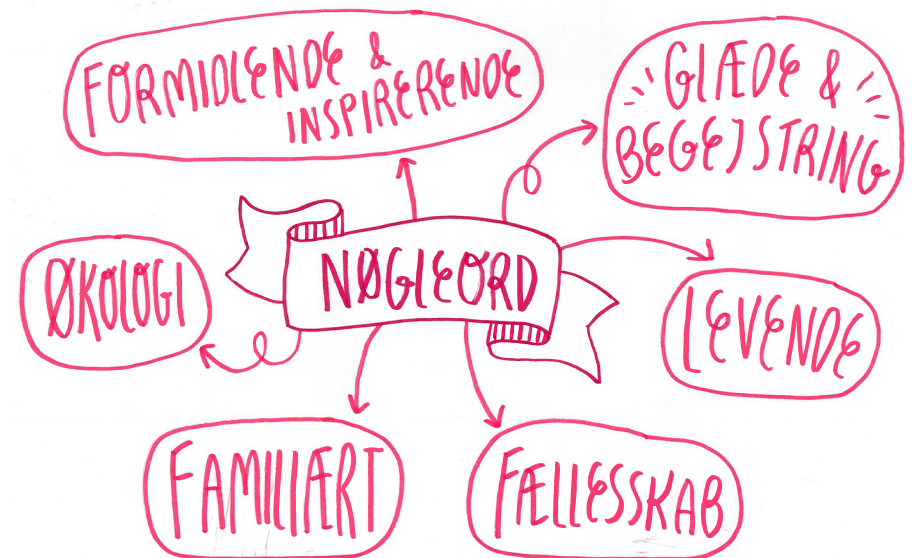 FORMIDLENDE &
INSPIRERENDE
GLÆDE &
BEGEJSTRING
NØGLEORD
ØKOLOGI
LEVENDE
FAMILIÆRT
FÆLLESSKAB